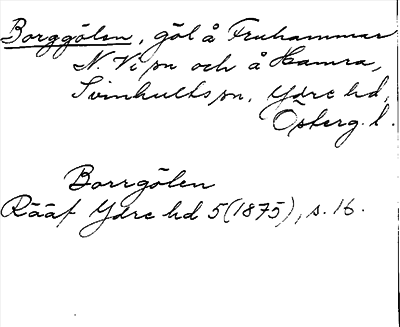 Borggölen, göl å Fruhammar
N. Vi sn och å Hamra,
Svinhults sn, Ydre hd,
Österg. l.
Borrgölen
Rääf Ydre hd 5 (1875), s. 16.